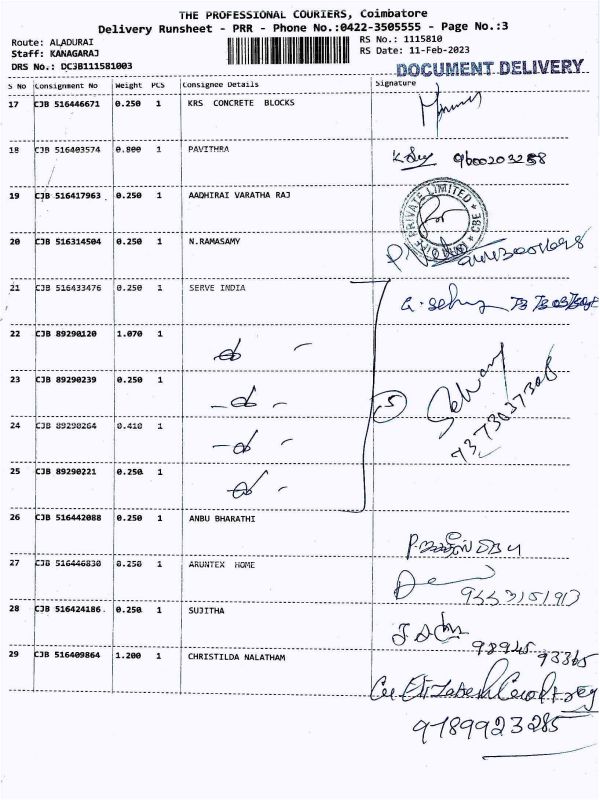 THE PROFESSIONAL COURIERS, Coimbatore
Delivery Runsheet - PRR - Phone No.:0422-3505555 - Page No.:3
Route: ALADURAI
RS No.: 1115810
Staff: KANAGARAJ
RS Date: 11-Feb-2023
DRS No.: DC3B111581003
DOCUMENT DELIVERY
S No Consignment No Weight PCS Consignee Details Signature
17 CJB 516446671 0.250 1 KRS CONCRETE BLOCKS
18 CJB 516403574 0.800 1 PAVITHRA
19 CJB 516417963 0.250 1 AADHIRAI VARATHA RAJ
PRIVATE LIMITED * CBE *
20 CJB 516314504 0.250 1 N.RAMASAMY
21 CJB 516433476 0.250 1 SERVE INDIA
22 CJB 89290120 1.070 1
23 CJB 89290239 0.250 1
5
24 CJB 89290264 0.410 1
Selvaraj
7373037308
25 CJB 89290221 0.250 1
26 CJB 516442088 0.250 1 ANBU BHARATHI
27 CJB 516446830 0.250 1 ARUNTEX HOME
28 CJB 516424186 0.250 1 SUJITHA
98945 93365
29 CJB 516409864 1.200 1 CHRISTILDA NALATHAM
9789923285